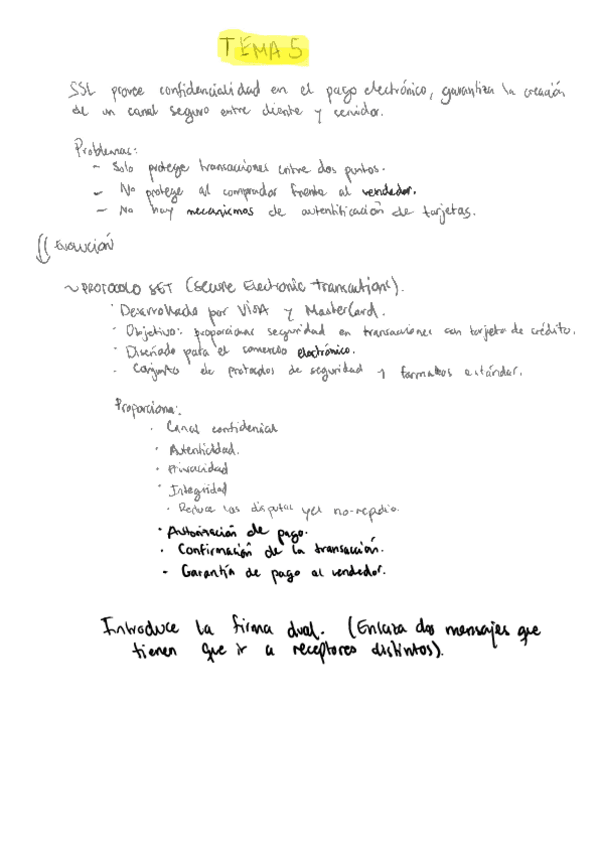 TEMA 5
SSL provee confidencialidad en el pago electrónico, garantiza la creación
de un canal seguro entre cliente y servidor.
Problemas:
- Solo protege transacciones entre dos puntos.
- No protege al comprador frente al vendedor.
- No hay mecanismos de autentificación de tarjetas.
Evolución
~ PROTOCOLO SET (Secure Electronic Transactions).
· Desarrollado por VISA y MasterCard.
· Objetivo: proporcionar seguridad en transacciones con tarjeta de crédito.
· Diseñado para el comercio electrónico.
· Conjunto de protocolos de seguridad y formatos estándar.
Proporciona:
· Canal confidencial
· Autenticidad.
· Privacidad
· Integridad
· Reduce las disputas y el no-repudio.
· Autorización de pago.
· Confirmación de la transacción.
- Garantía de pago al vendedor.
Introduce la firma dual. (Enlaza dos mensajes que
tienen que ir a receptores distintos).